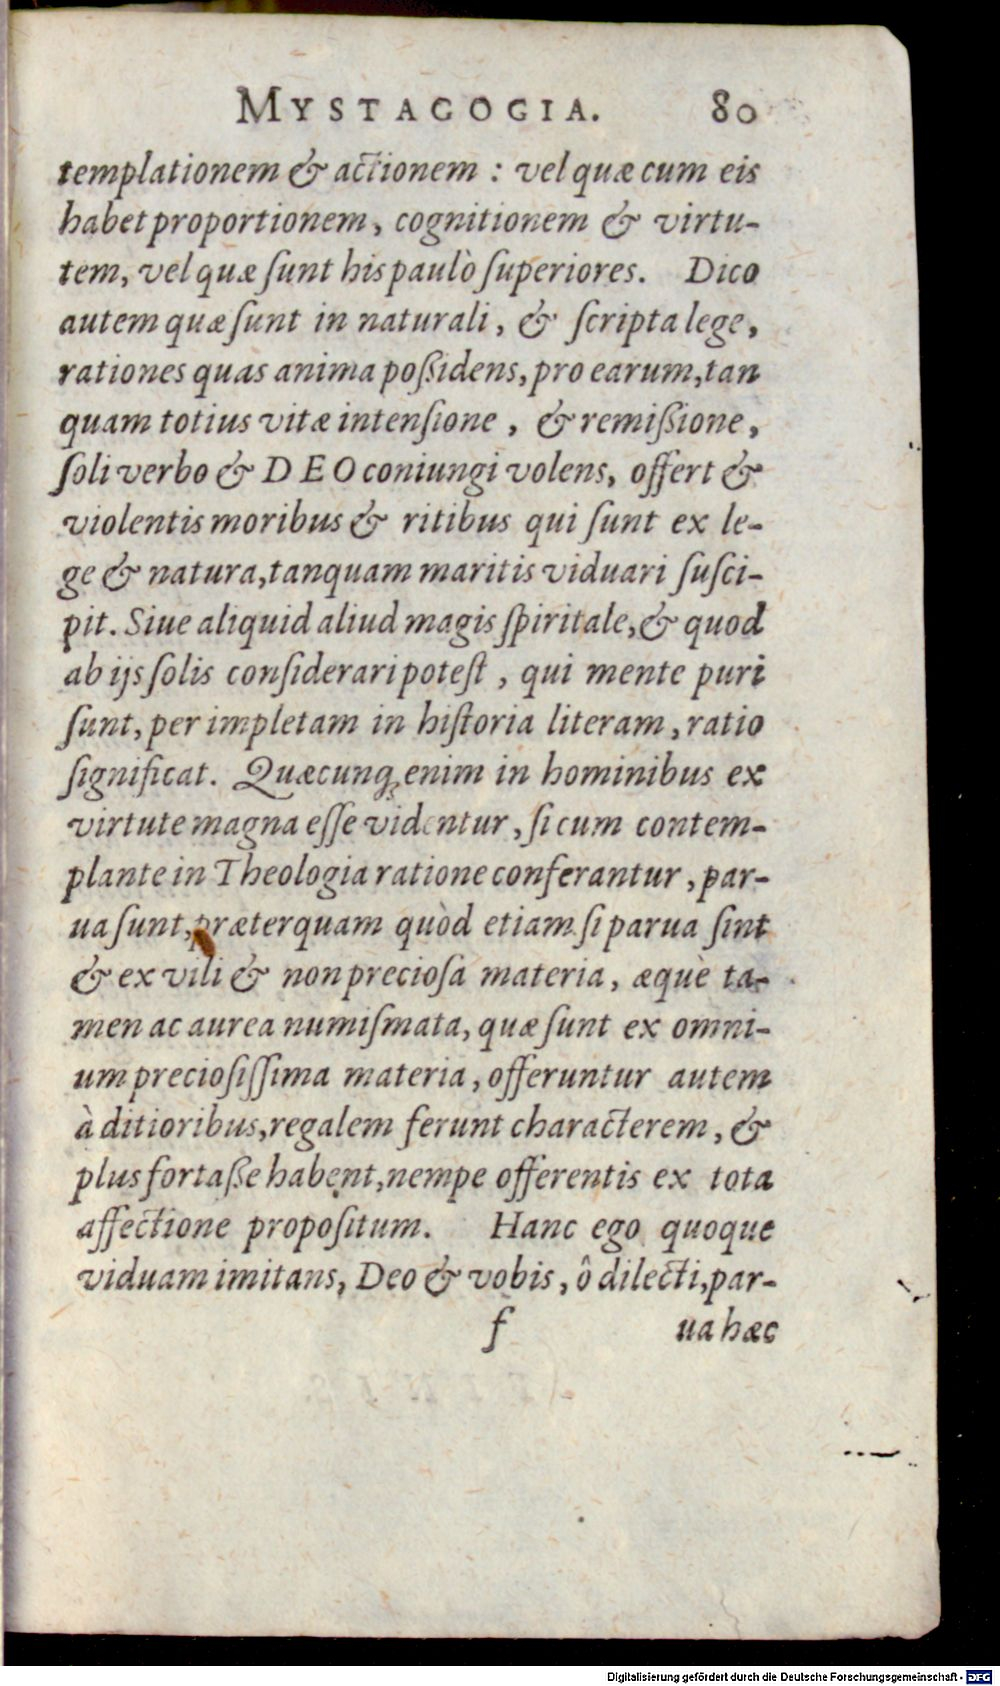 MYSTAGOGIA. 80
templationem & actionem : vel quæ cum eis
habet proportionem, cognitionem & virtu-
tem, vel quæ ſunt his paulò ſuperiores. Dico
autem quæ ſunt in naturali, & ſcripta lege,
rationes quas anima poßidens, pro earum, tan
quam totius vitæ intenſione, & remißione,
ſoli verbo & DEO coniungi volens, offert &
violentis moribus & ritibus qui ſunt ex le-
ge & natura, tanquam maritis viduari ſuſci-
pit. Siue aliquid aliud magis ſpiritale, & quod
ab ijs ſolis conſiderari poteſt, qui mente puri
ſunt, per impletam in hiſtoria literam, ratio
ſignificat. Quæcunqꝫ enim in hominibus ex
virtute magna eſſe videntur, ſi cum contem-
plante in Theologia ratione conferantur, par-
ua ſunt, præterquam quòd etiam ſi parua ſint
& ex vili & non precioſa materia, æquè ta-
men ac aurea numiſmata, quæ ſunt ex omni-
um precioſiſſima materia, offeruntur autem
à ditioribus, regalem ferunt characterem, &
plus fortaße habent, nempe offerentis ex tota
affectione propoſitum. Hanc ego quoque
viduam imitans, Deo & vobis, ô dilecti, par-
f ua hæc
Digitalisierung gefördert durch die Deutsche Forschungsgemeinschaft - DFG